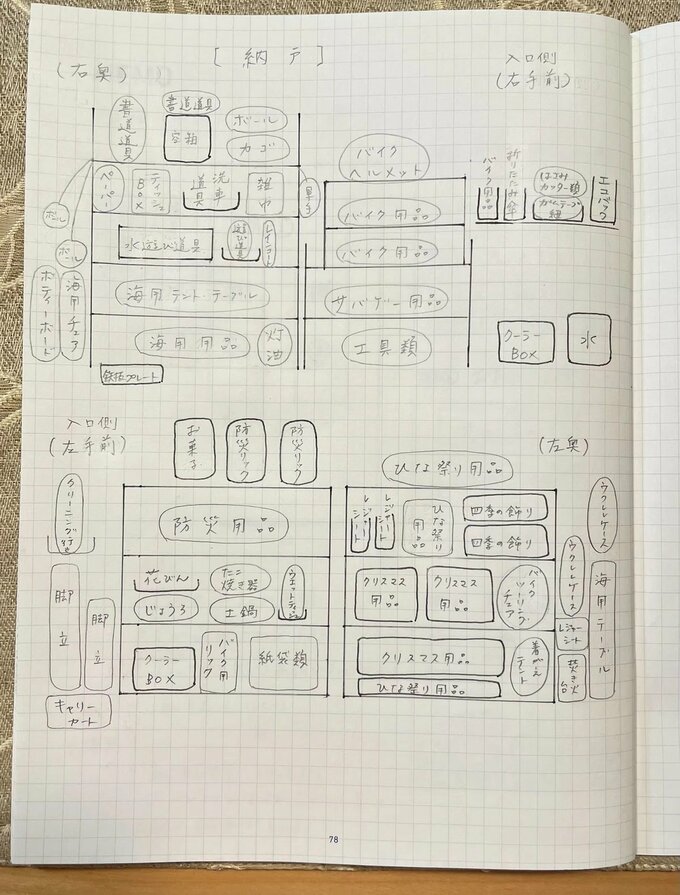 [納戸]
(右奥)
入口側
(右手前)
書道道具
書道道具
空箱
ボール
カゴ
ペーパー
BOX
ティッシュ
洗車
道具
雑巾
軍手
ボール
ボール
水遊び道具
遊び道具
レインコート
海用テント・テーブル
海用用品
灯油
ボディーボード
海用チェア
鉄板プレート
バイク
ヘルメット
バイク用品
バイク用品
サバゲー用品
工具類
バイク用品
折りたたみ傘
はさみ
カッター類
ガムテープ
紐
エコバック
クーラー
BOX
水
入口側
(左手前)
お菓子
防災リック
防災リック
クリーニング行き
防災用品
花びん
じょうろ
たこ
焼き器
土鍋
ウエットティッシュ
クーラー
BOX
バイク用
リック
紙袋類
脚立
脚立
キャリー
カート
(左奥)
ひな祭り用品
レジャー
シート
レジャー
シート
ひな祭り
用品
四季の飾り
四季の飾り
クリスマス
用品
クリスマス
用品
バイク
ツーリング
チェア
クリスマス用品
ひな祭り用品
着がえ
テント
ウクレレケース
ウクレレケース
レジャー
シート
焚き火
台
海用テーブル
78